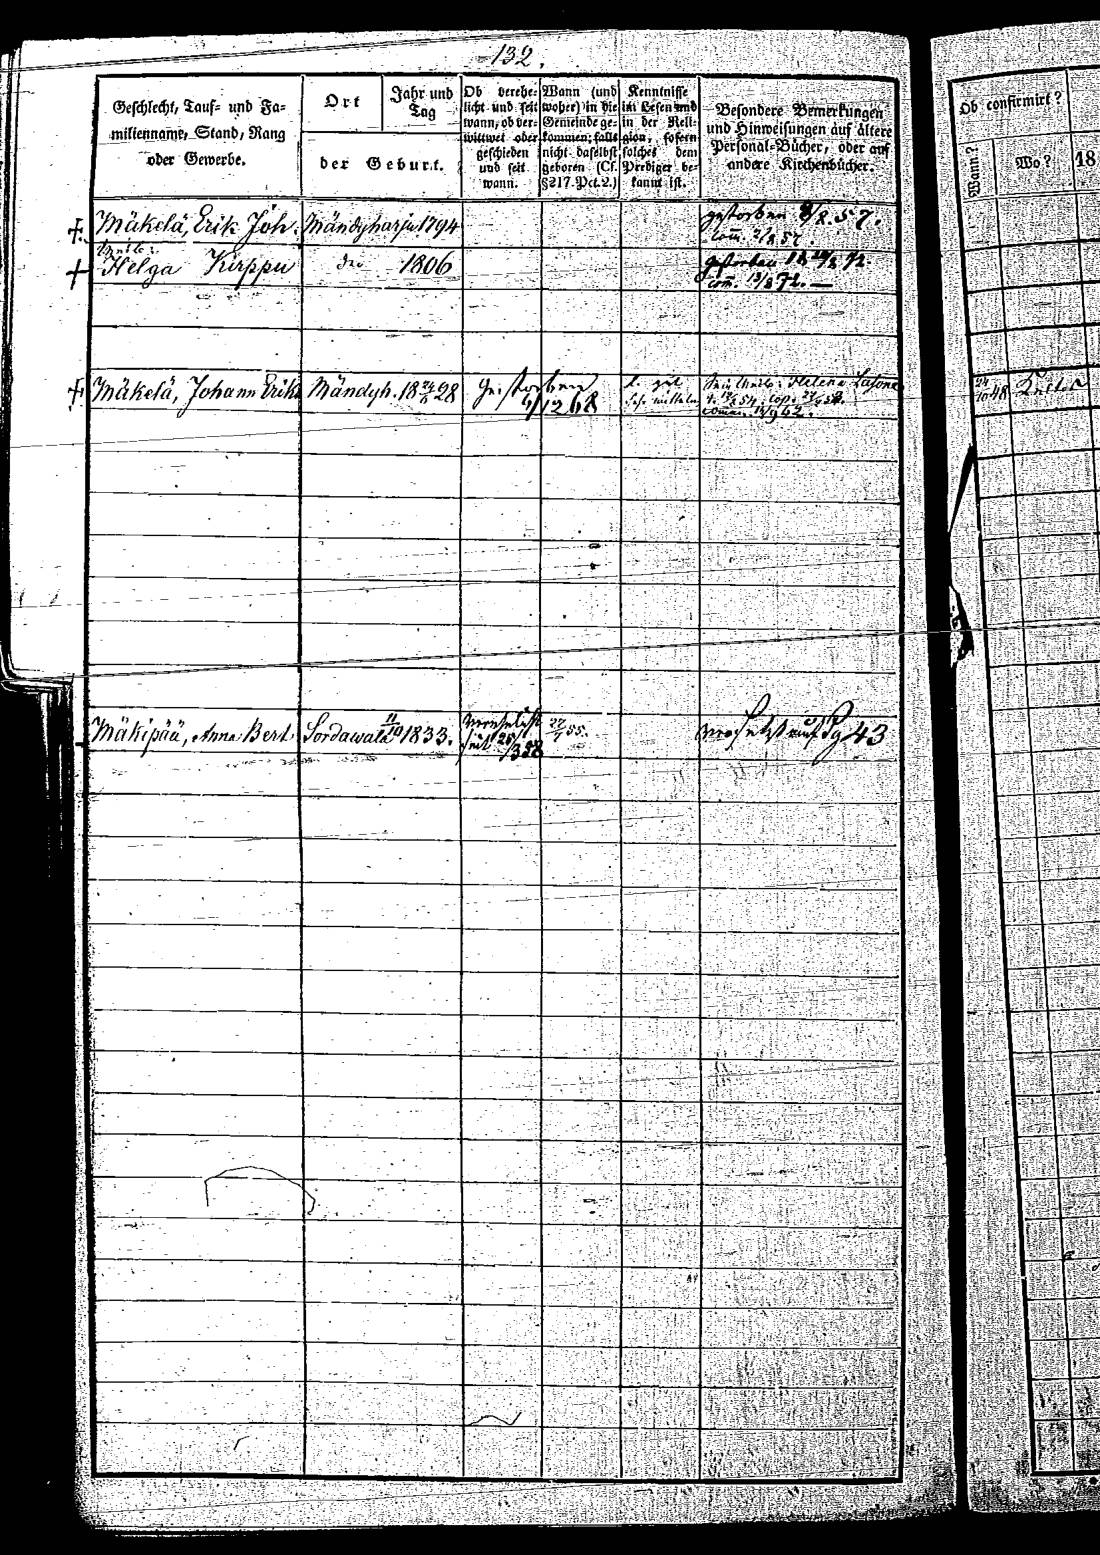 132.
Geschlecht, Tauf= und Fa=
milienname, Stand, Rang
oder Gewerbe.
Ort
Jahr und
Tag
der Geburt.
Ob verehe=
licht und seit
wann, ob ver=
wittwet oder
geschieden
und seit
wann.
Wann (und
woher) in die
Gemeinde ge=
kommen; falls
nicht daselbst
geboren (Cf.
§217. Pct.2.)
Kenntnisse
im Lesen und
in der Reli=
gion, sofern
solches dem
Prediger be=
kannt ist.
Besondere Bemerkungen
und Hinweisungen auf ältere
Personal=Bücher, oder auf
andere Kirchenbücher.
Ob confirmirt?
Wann?
Wo?
18
Mäkelä, Erik Joh. Mändyharju 1794 gestorben 8/8.57.
com. 2/8.57.
Helga Kirppu do 1806 gestorben
com. 13/8 72.
Mäkelä, Johann Eriks Mändyh. 18 28 Gestorben 4/12 68 l. gut Sein Weib: Helena
48
Mäkipää, Anna Bert. Sordawala 11/10 1833. verehelicht 55. versetzt auf Pg 43
seit 25/3 58